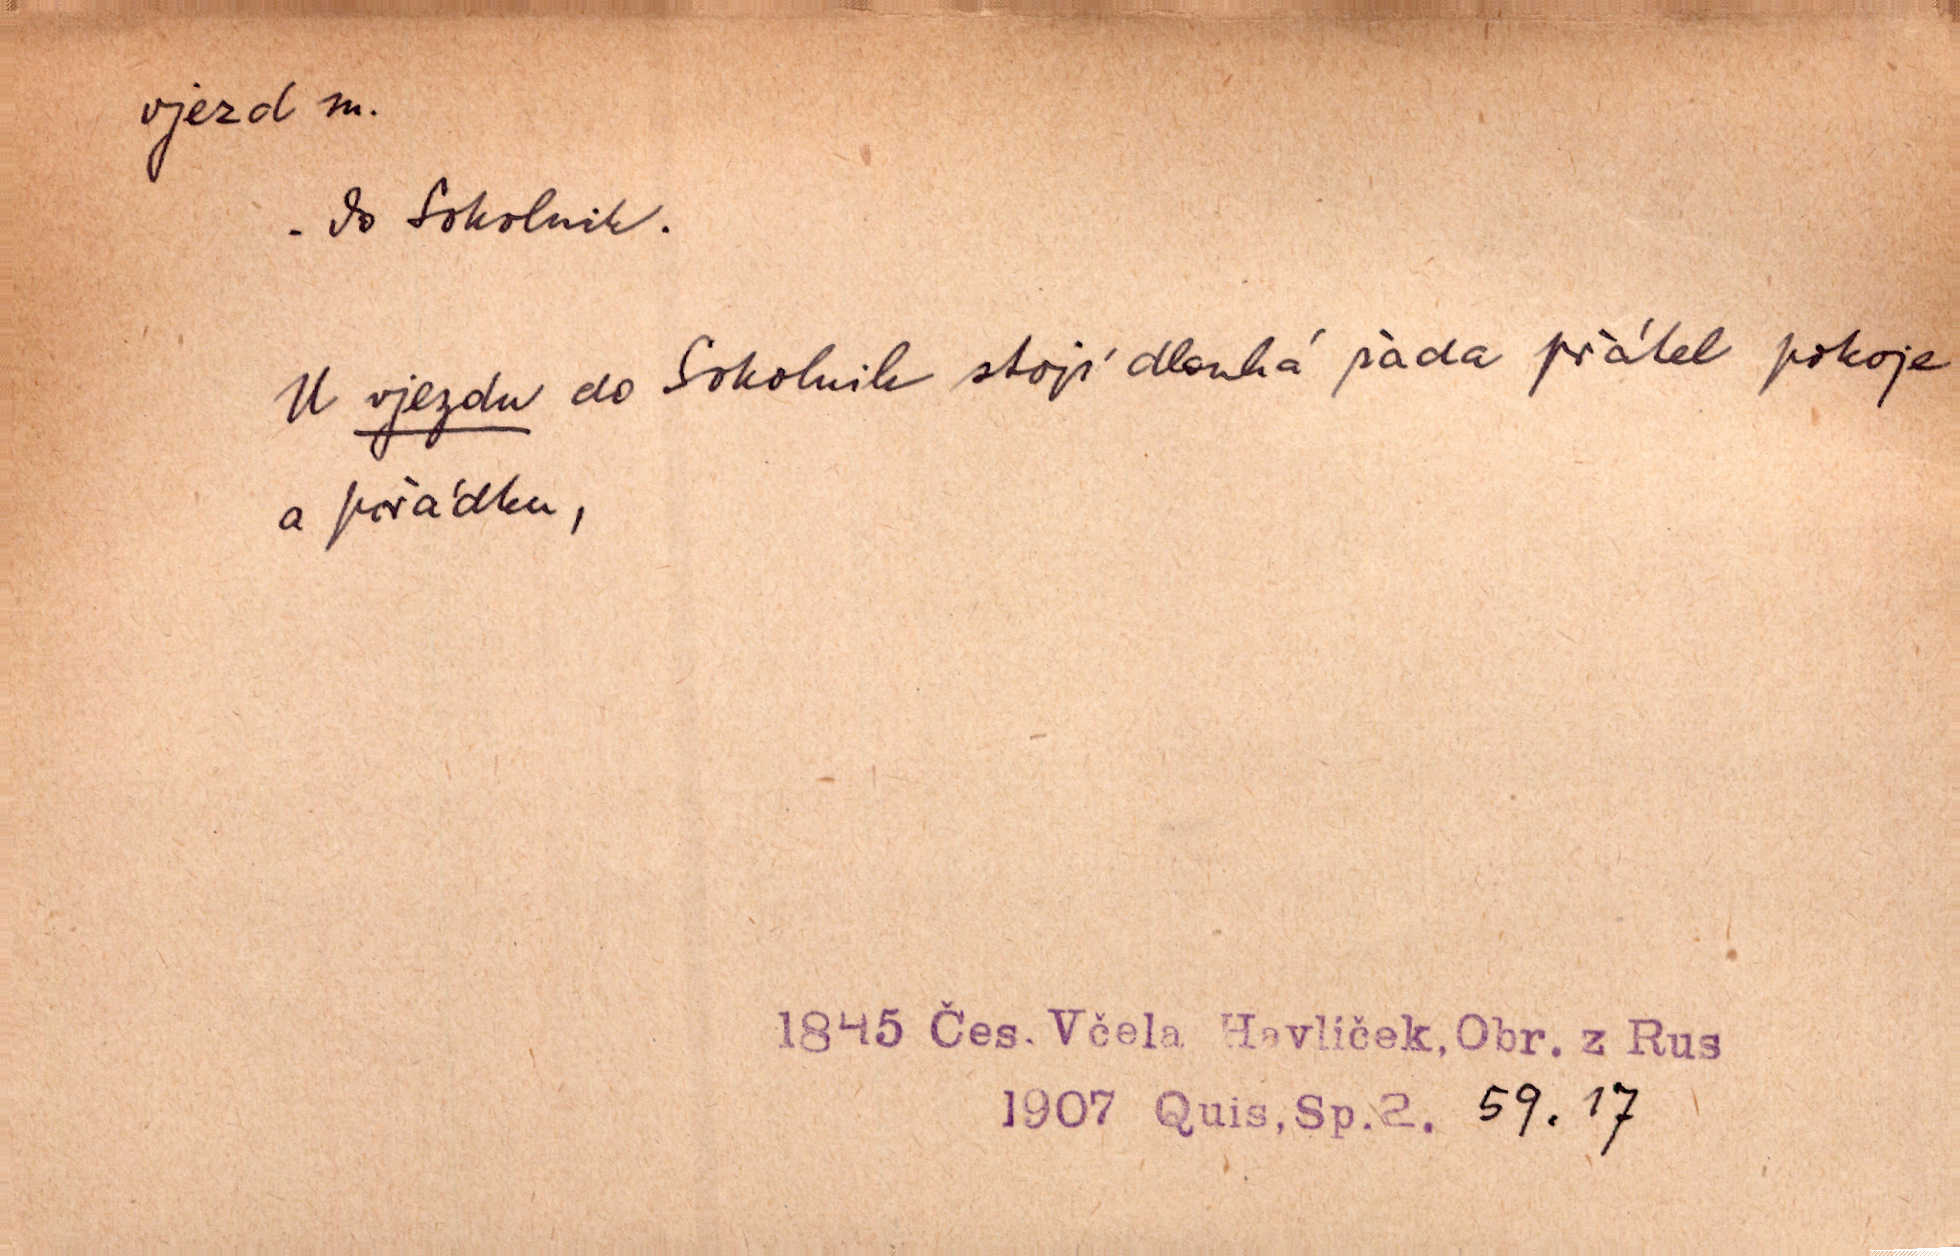 vjezd m.
- do Sokolnik.
U vjezdu do Sokolnik stojí dlouhá řada přátel pokoje
a pořádku,
1845 Čes. Včela Havlíček, Obr. z Rus
1907 Quis, Sp. 2. 59. 17